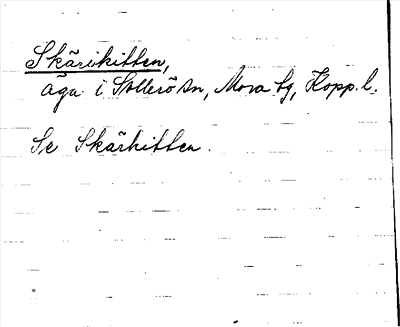 Skärikitten,
äga i Sollerö sn, Mora tg, Kopp. l.
Se Skärhitten.